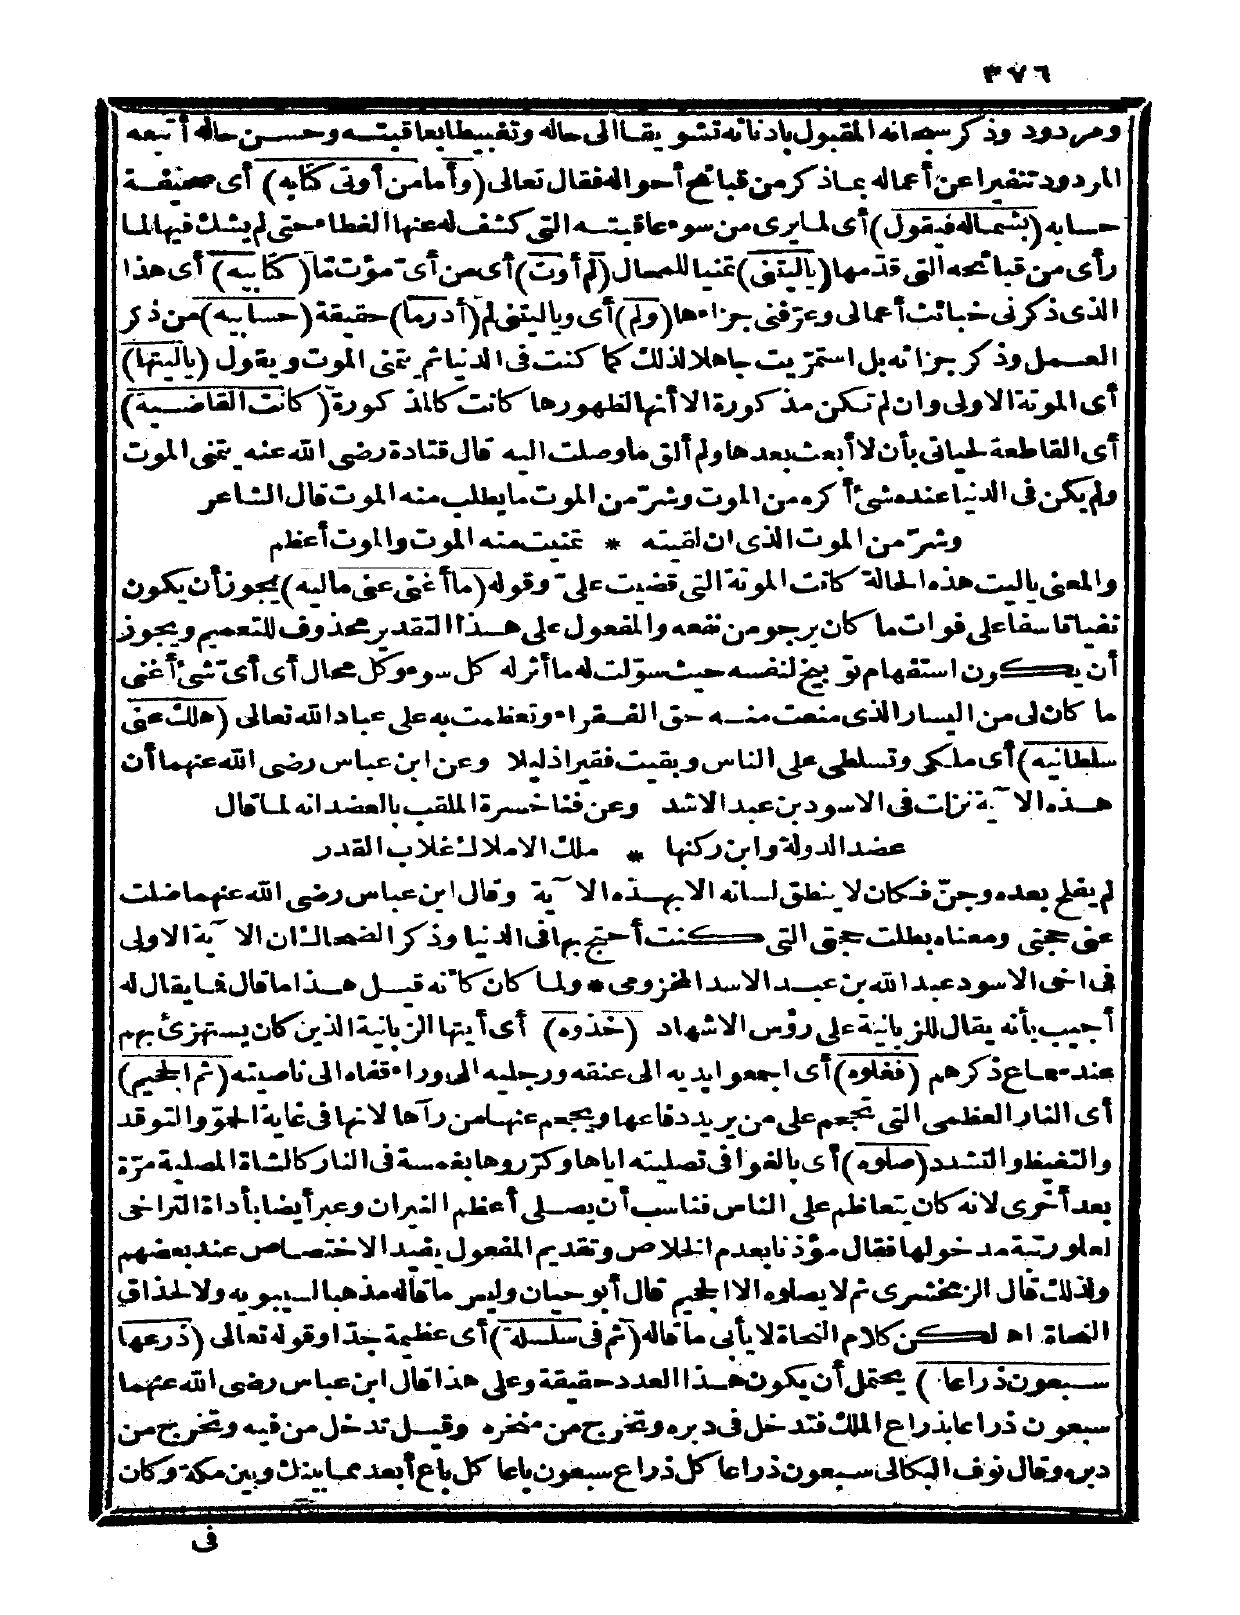 ٣٧٦
ومردود وذكر سبحانه المقبول بادئا به تشويقا الى حاله وتغبيطا بعاقبته وحسن حاله أتبعه
المردود تنفيرا عن أعماله بما ذكر من قبائح أحواله فقال تعالى (وأما من أوتى كتابه) أى صحيفة
حسابه (بشماله فيقول) أى لما يرى من سوء عاقبته التى كشف له عنها الغطاء حتى لم يشك فيها لما
رأى من قبائحه التى قدّمها (ياليتنى) تمنيا للمحال (لم أوت) أى من أىّ مؤت ما (كتابيه) أى هذا
الذى ذكرنى خبائث أعمالى وعرّفنى جزاءها (ولم) أى وياليتنى لم (أدر ما) حقيقة (حسابيه) من ذكر
العمل وذكر جزائه بل استمرّيت جاهلا لذلك كما كنت فى الدنيا ثم يتمنى الموت ويقول (ياليتها)
أى الموتة الاولى وان لم تكن مذكورة الا أنها لظهورها كانت كالمذكورة (كانت القاضية)
أى القاطعة لحياتى بأن لا أبعث بعدها ولم ألق ما وصلت اليه قال قتادة رضى الله عنه يتمنى الموت
ولم يكن فى الدنيا عنده شئ أكره من الموت وشرّ من الموت ما يطلب منه الموت قال الشاعر
وشرّ من الموت الذى ان لقيته * تمنيت منه الموت والموت أعظم
والمعنى ياليت هذه الحالة كانت الموتة التى قضيت علىّ وقوله (ما أغنى عنى ماليه) يجوز أن يكون
نفيا تأسفا على فوات ما كان يرجو من نفعه والمفعول على هذا التقدير محذوف للتعميم ويجوز
أن يكون استفهام توبيخ لنفسه حيث سوّلت له ما أثر له كل سوء وكل محال أى أىّ شئ أغنى
ما كان لى من اليسار الذى منعت منه حق الفقراء وتعظمت به على عباد الله تعالى (هلك عنى
سلطانيه) أى ملكى وتسلطى على الناس وبقيت فقيرا ذليلا وعن ابن عباس رضى الله عنهما أن
هذه الآية نزلت فى الاسود بن عبد الاشد وعن فناخسرة الملقب بالعضد انه لما قال
عضد الدولة وابن ركنها * ملك الاملاك غلاب القدر
لم يفلح بعده وجنّ فكان لا ينطق لسانه الا بهذه الآية وقال ابن عباس رضى الله عنهما ضلت
عنى حجتى ومعناه بطلت حجتى التى كنت أحتج بها فى الدنيا وذكر الضحاك ان الآية الاولى
فى اخى الاسود عبد الله بن عبد الاسد المخزومى * ولما كان كأنه قيل هذا ما قال فما يقال له
أجيب بأنه يقال للزبانية على رؤس الاشهاد (خذوه) أى أيتها الزبانية الذين كان يستهزئ بهم
عند سماع ذكرهم (فغلوه) أى اجمعوا يديه الى عنقه ورجليه الى وراء قفاه الى ناصيته (ثم الجحيم)
أى النار العظمى التى تجحم على من يريد دفاعها ويحجم عنها من رآها لانها فى غاية الحموّ والتوقد
والتغيظ والتشدد (صلوه) أى بالغوا فى تصليته اياها وكرّروها بغمسه فى النار كالشاة المصلية مرّة
بعد أخرى لانه كان يتعاظم على الناس فناسب أن يصلى أعظم النيران وعبر أيضا بأداة التراخى
لعلو رتبة مدخولها فقال مؤذنا بعدم الخلاص وتقديم المفعول يفيد الاختصاص عند بعضهم
ولذلك قال الزمخشرى ثم لا يصلوه الا الجحيم قال أبو حيان وليس ما قاله مذهبا لسيبويه ولا لحذاق
النحاة اه لكن كلام النحاة لا يأبى ما قاله (ثم فى سلسلة) أى عظيمة جدّا وقوله تعالى (ذرعها
سبعون ذراعا) يحتمل أن يكون هذا العدد حقيقة وعلى هذا قال ابن عباس رضى الله عنهما
سبعون ذراعا بذراع الملك فتدخل فى دبره وتخرج من منخره وقيل تدخل من فيه وتخرج من
دبره وقال نوف البكالى سبعون ذراعا كل ذراع سبعون باعا كل باع أبعد مما بينك وبين مكة وكان
فى